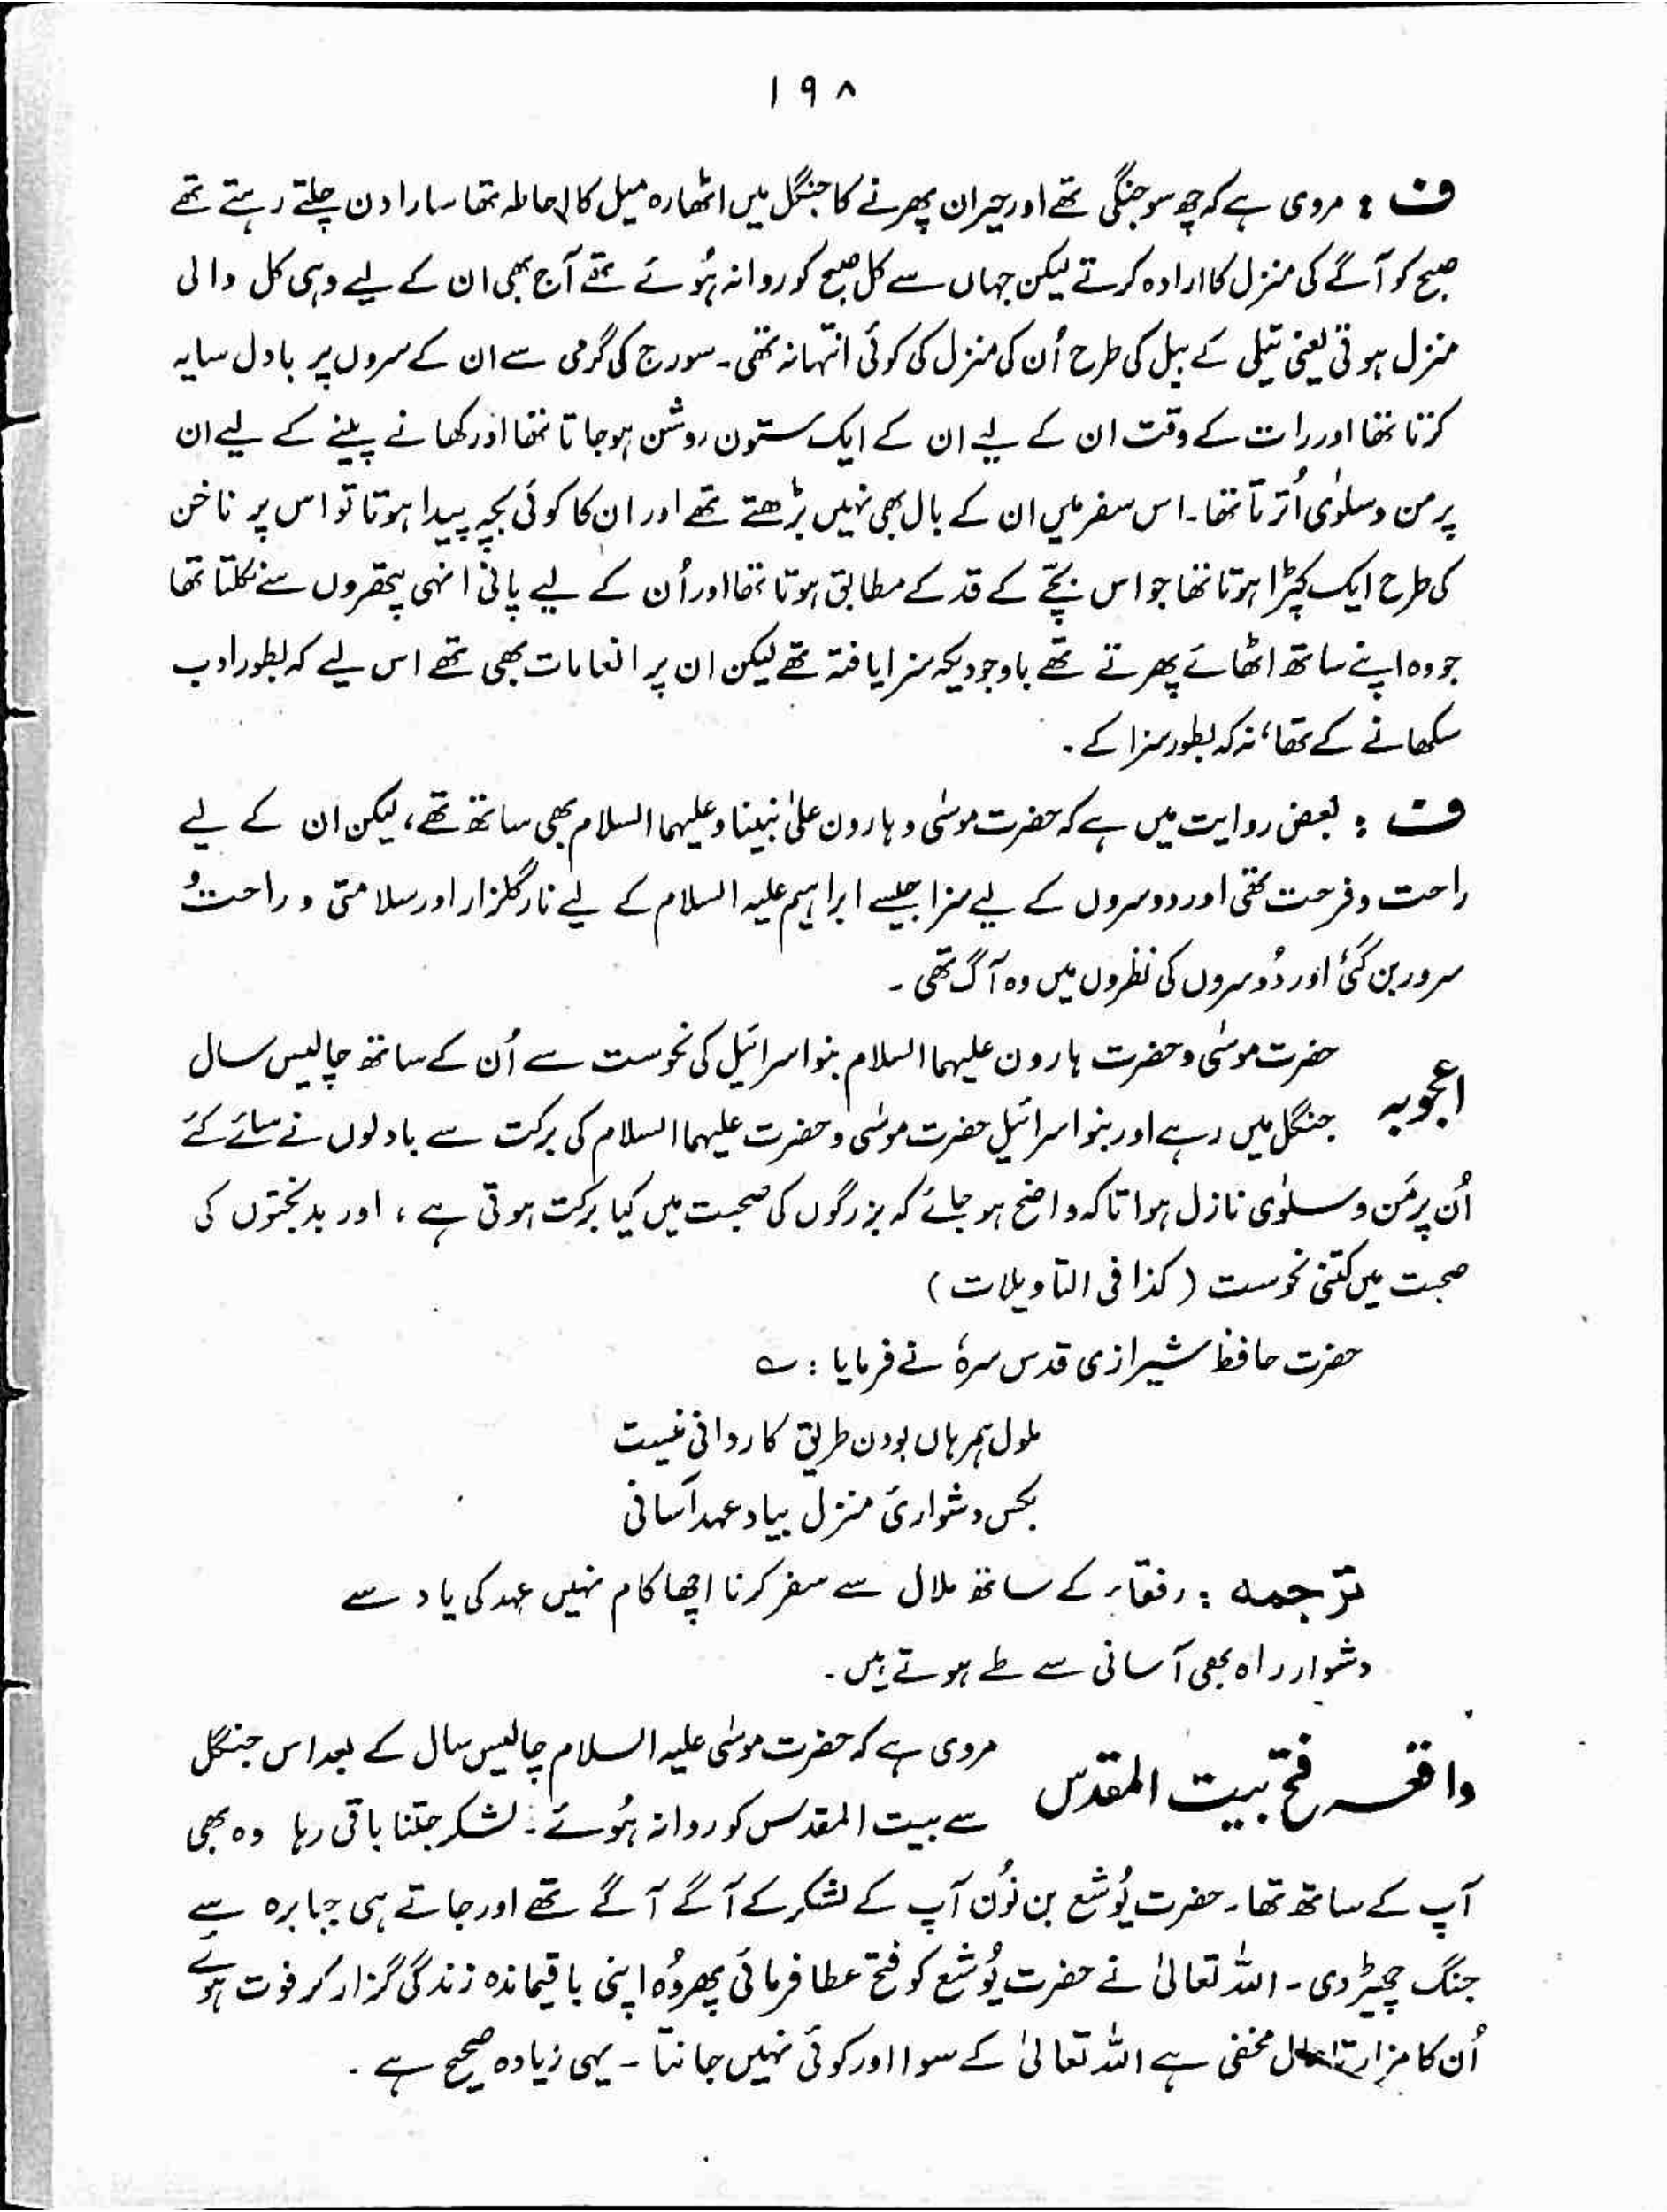 ۱۹۸
ف : مروی ہے کہ چھ سو جنگی تھے اور حیران پھرنے کا جنگل میں اٹھارہ میل کا احاطہ تھا سارا دن چلتے رہتے تھے
صبح کو آگے کی منزل کا ارادہ کرتے لیکن جہاں سے کل صبح کو روانہ ہُوئے تھے آج بھی ان کے لیے وہی کل والی
منزل ہوتی یعنی تیلی کے بیل کی طرح اُن کی منزل کی کوئی انتہا نہ تھی۔ سورج کی گرمی سے ان کے سروں پر بادل سایہ
کرتا تھا اور رات کے وقت ان کے لیے ان کے ایک ستون روشن ہو جاتا تھا اور کھانے پینے کے لیے ان
پر من و سلوٰی اُترتا تھا۔ اس سفر میں ان کے بال بھی نہیں بڑھتے تھے اور ان کا کوئی بچہ پیدا ہوتا تو اس پر ناخن
کی طرح ایک کپڑا ہوتا تھا جو اس بچّے کے قد کے مطابق ہوتا تھا اور اُن کے لیے پانی انہی پتھروں سے نکلتا تھا
جو وہ اپنے ساتھ اٹھائے پھرتے تھے باوجودیکہ سزا یافتہ تھے لیکن ان پر انعامات بھی تھے اس لیے کہ بطور ادب
سکھانے کے تھا، نہ کہ بطور سزا کے۔
ف : بعض روایت میں ہے کہ حضرت موسٰی و ہارون علیٰ نبینا و علیہما السلام بھی ساتھ تھے، لیکن ان کے لیے
راحت و فرحت تھی اور دوسروں کے لیے سزا جیسے ابراہیم علیہ السلام کے لیے نار گلزار اور سلامتی و راحت و
سرور بن گئی اور دُوسروں کی نظروں میں وہ آگ تھی۔
اعجوبہ حضرت موسٰی و حضرت ہارون علیہما السلام بنو اسرائیل کی نحوست سے اُن کے ساتھ چالیس سال
جنگل میں رہے اور بنو اسرائیل حضرت موسٰی و حضرت علیہما السلام کی برکت سے بادلوں نے سائے کئے
اُن پر مَن و سلوٰی نازل ہوا تاکہ واضح ہو جائے کہ بزرگوں کی صحبت میں کیا برکت ہوتی ہے، اور بدبختوں کی
صحبت میں کتنی نحوست (کذا فی التاویلات)
حضرت حافظ شیرازی قدس سرہٗ نے فرمایا : ؎
ملول ہمرہاں بودن طریق کاردانی نیست
بکس دشواریٔ منزل بیاد عہد آسانی
ترجمہ : رفقاء کے ساتھ ملال سے سفر کرنا اچھا کام نہیں عہد کی یاد سے
دشوار راہ بھی آسانی سے طے ہوتے ہیں۔
واقعہ فتح بیت المقدس مروی ہے کہ حضرت موسٰی علیہ السلام چالیس سال کے بعد اس جنگل
سے بیت المقدس کو روانہ ہُوئے۔ لشکر جتنا باقی رہا وہ بھی
آپ کے ساتھ تھا۔ حضرت یُوشع بن نُون آپ کے لشکر کے آگے آگے تھے اور جاتے ہی جبابرہ سے
جنگ چھیڑ دی۔ اللہ تعالیٰ نے حضرت یُوشع کو فتح عطا فرمائی پھر وُہ اپنی باقیماندہ زندگی گزار کر فوت ہوئے
اُن کا مزار مخفی ہے اللہ تعالیٰ کے سوا اور کوئی نہیں جانتا۔ یہی زیادہ صحیح ہے۔